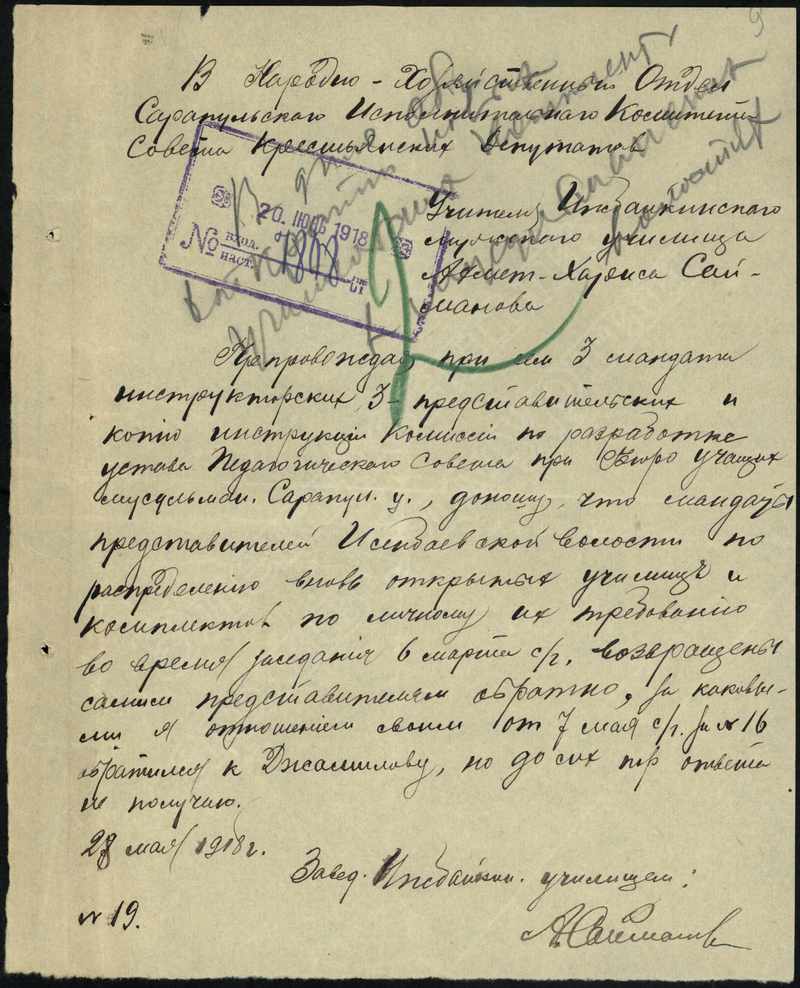 9
В Народно-Хозяйственный Отдел
Сарапульского Исполнительного Комитета
Совета Крестьянских Депутатов
20. ИЮНЬ 1918
№ вход. наст. 1808 ст
Учителя Ижбайкинского
мужского училища
Ахмет-Хариса Сай-
манова
Препровождая при сем 3 мандата
инструкторских, 3 - представительских и
копию инструкции Комиссии по разработке
устава Педагогического Совета при Бюро учащих
мусульман. Сарапул. у., доношу, что мандаты
представителей Исенбаевской волости по
распределению вновь открытых училищ и
комплектов по личному их требованию
во время заседания 6 марта с/г. возвращены
самим представителям обратно, за каковы-
ми я отношением своим от 7 мая с/г. за № 16
обратился к Джамилову, но до сих пор ответа
не получаю.
28 мая 1918 г.
Завед. Ижбайкин. училищем:
№ 19.
А. Сайманов